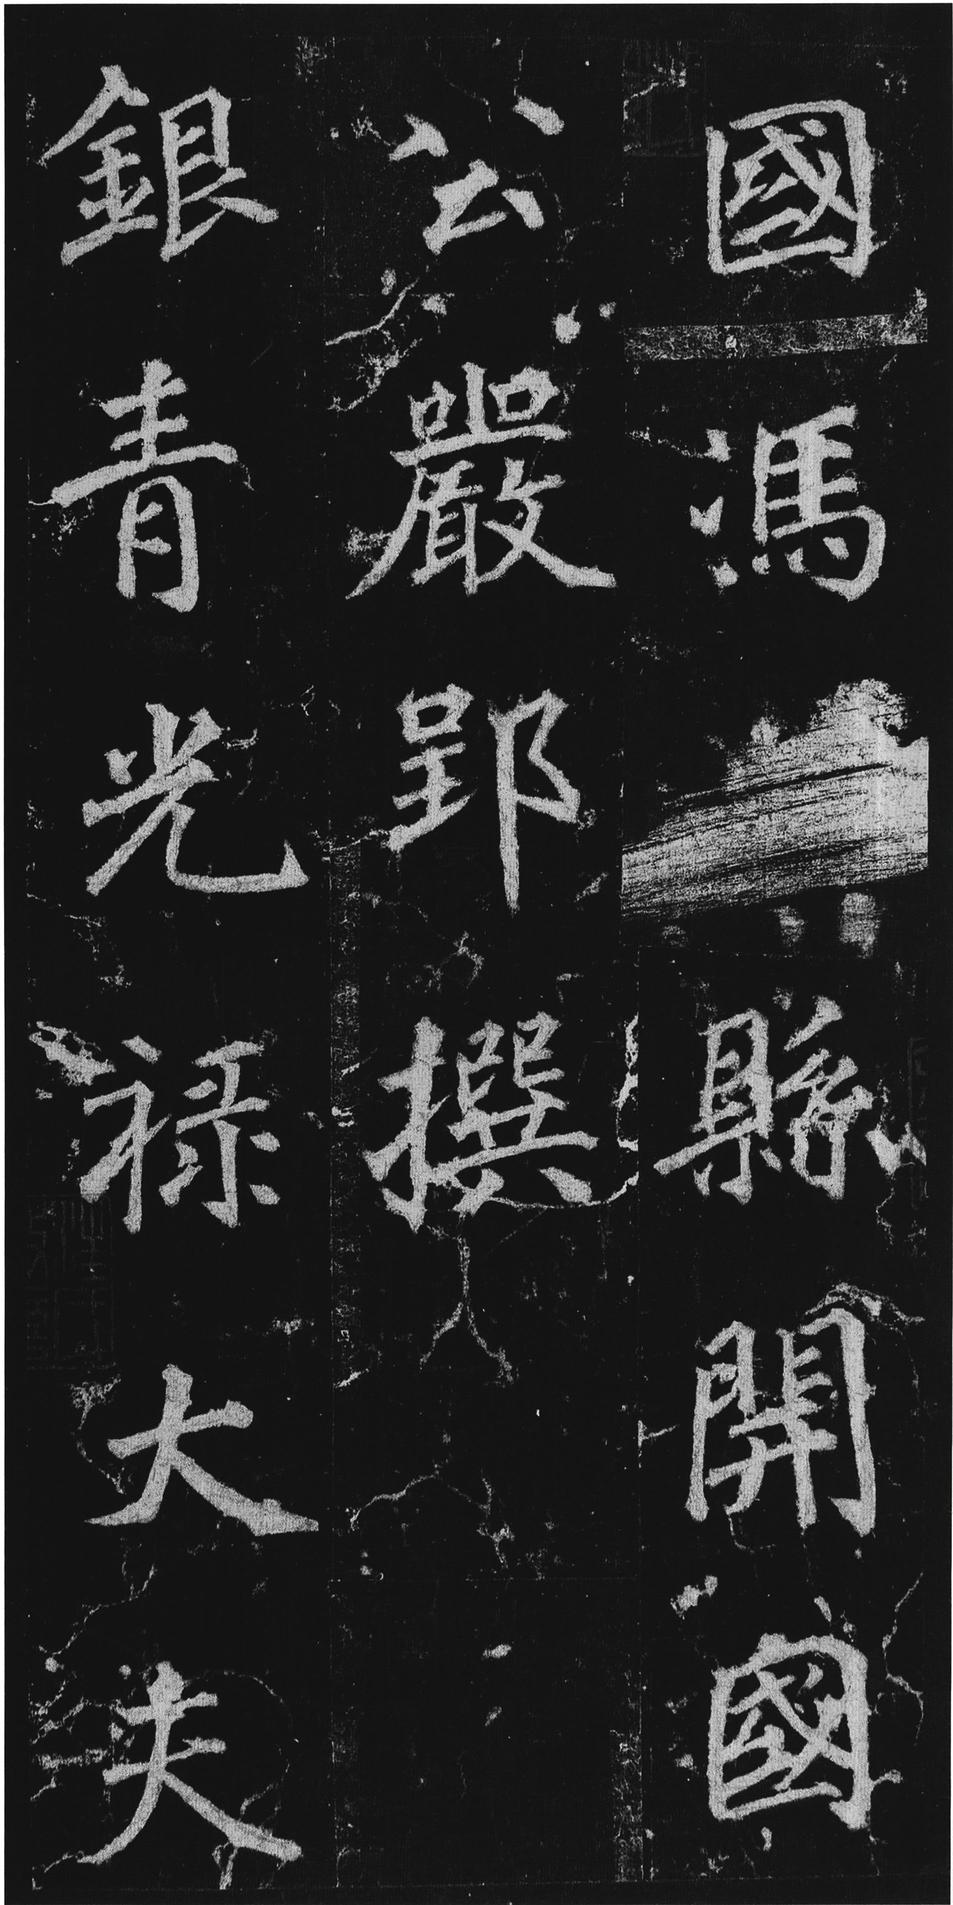 國馮縣開國
公嚴郢撰
銀青光祿大夫